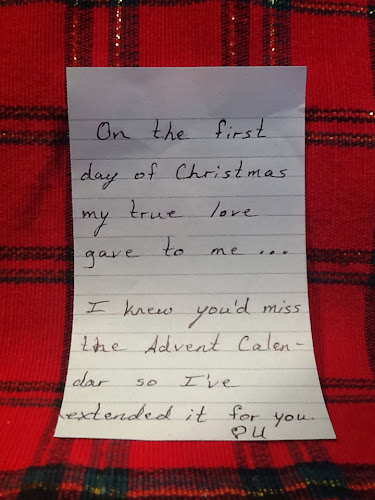 On the first
day of Christmas
my true love
gave to me ...
I knew you'd miss
the Advent Calen-
dar so I've
extended it for you.
PU